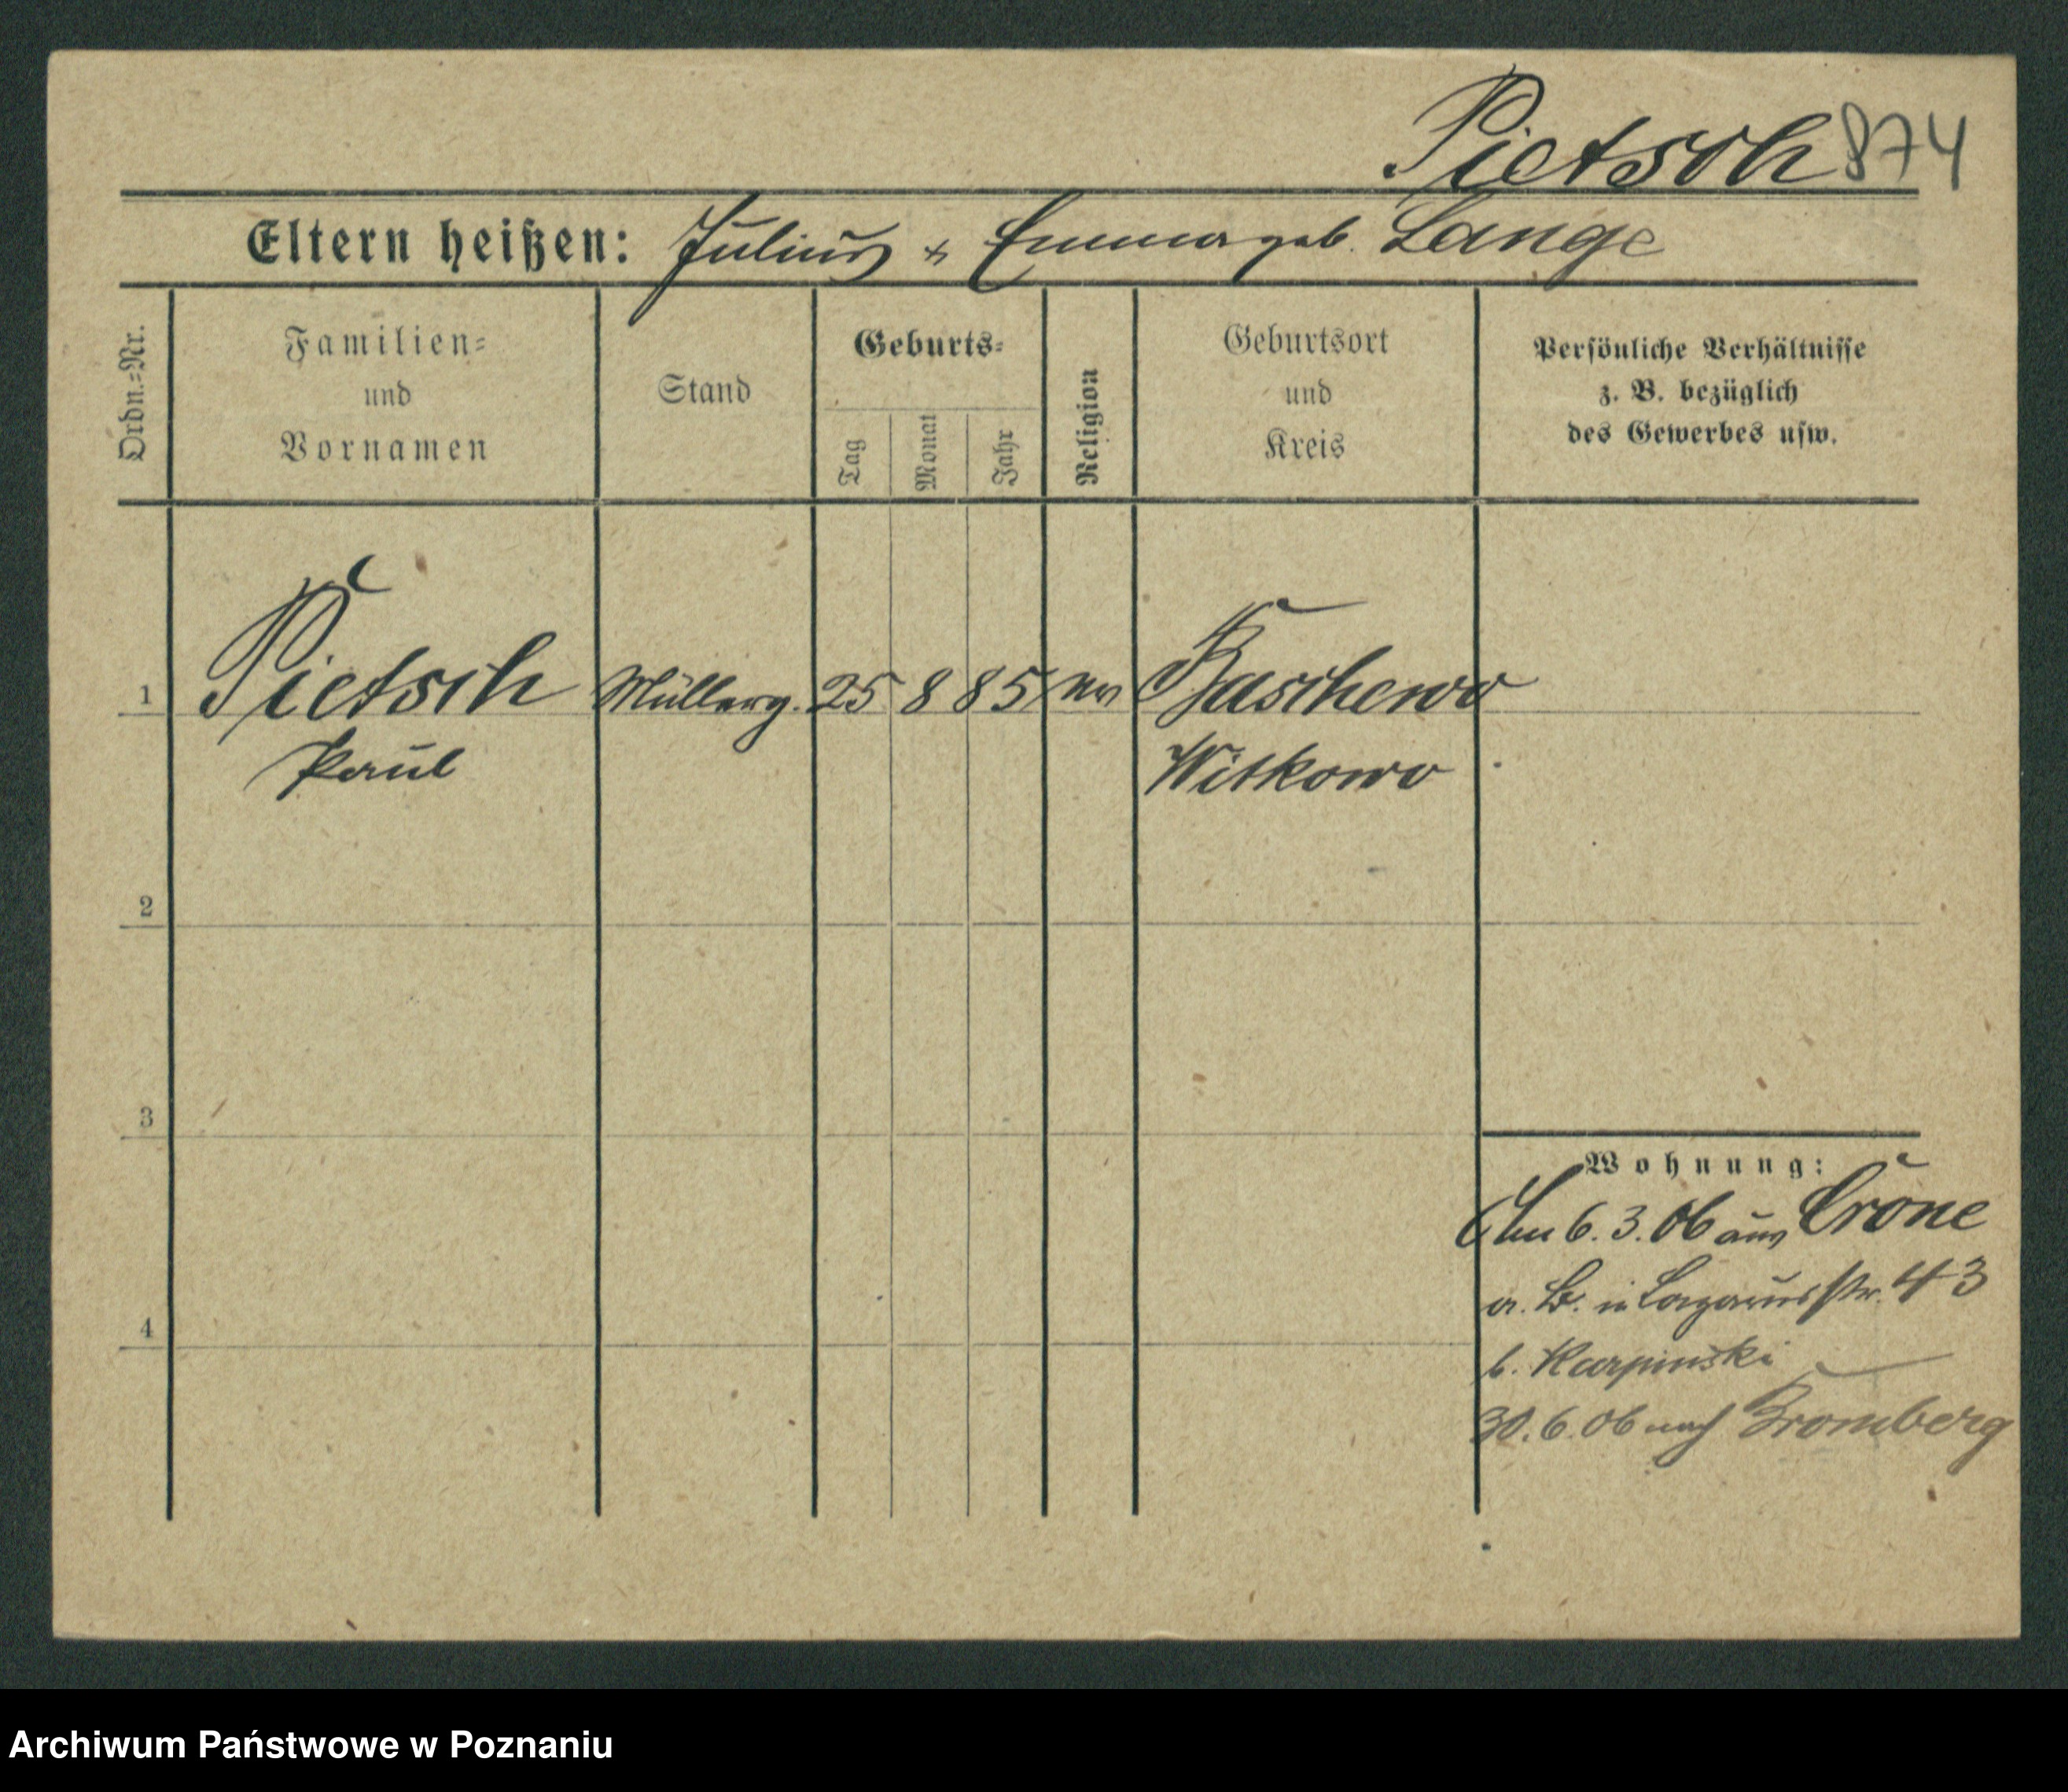 Pietsch 874
Eltern heißen: Julius & Emma geb. Lange
Ordn.=Nr.
Familien= und Vornamen
Stand
Geburts=
Tag
Monat
Jahr
Religion
Geburtsort und Kreis
Persönliche Verhältnisse
z. B. bezüglich
des Gewerbes usw.
1 Pietsch Müllerg. 25 8 85 Baschewo
Paul Witkowo
2
3
4
Wohnung:
Am 6. 3. 06 aus Crone
a. B. in Lazarusstr. 43
b. Karpinski
30. 6. 06 nach Bromberg
Archiwum Państwowe w Poznaniu